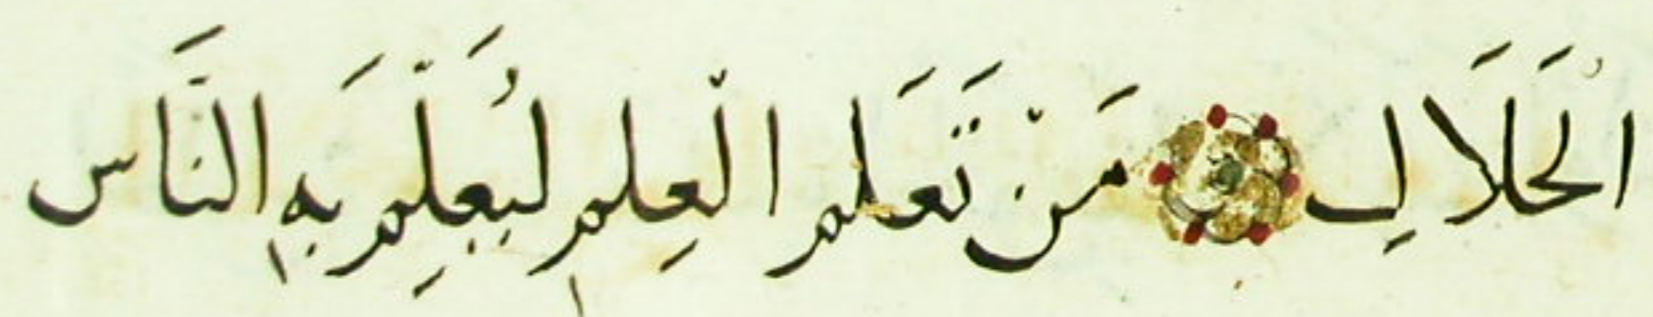 الْحَلَالِ مَنْ تَعَلَّمَ الْعِلْمَ لِيُعَلِّمَ بِهِ النَّاسَ